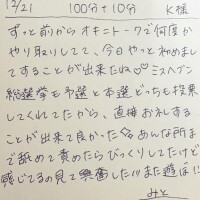 12/21 100分+10分 K様
ずっと前からオキニトークで何度か
やり取りしてて、今日やっと初めまし
てすることが出来たね♡♡ミスヘブン
総選挙も予選と本選どっちも投票し
てくれてたから、直接お礼する
ことが出来て良かった あんな所ま
で舐めて責めたらびっくりしてたけど
感じてるの見て興奮した!!!また遊ぼ!!!
みと